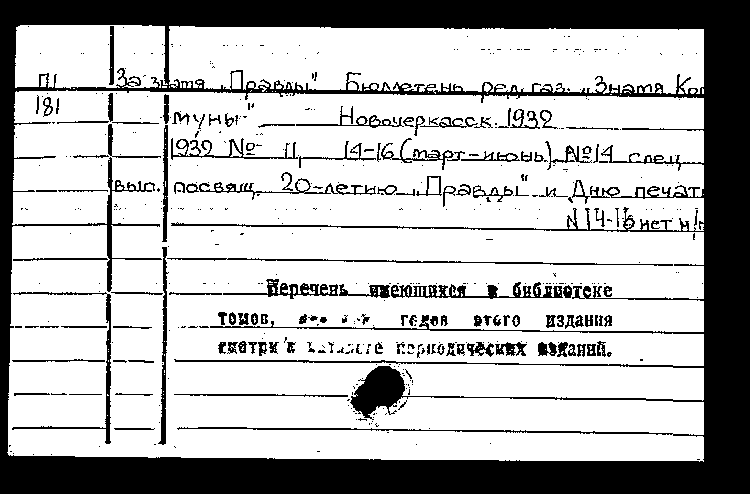 П1 За знамя „Правды" Бюллетень ред. газ. „Знамя Ком
181 муны". Новочеркасск. 1932
1932 № 11, 14-16 (март-июнь). №14 спец
вып. посвящ. 20-летию „Правды" и Дню печати
N 14-16 нет м/
Перечень имеющихся в библиотеке
томов, годов этого издания
смотри в каталоге периодических изданий.